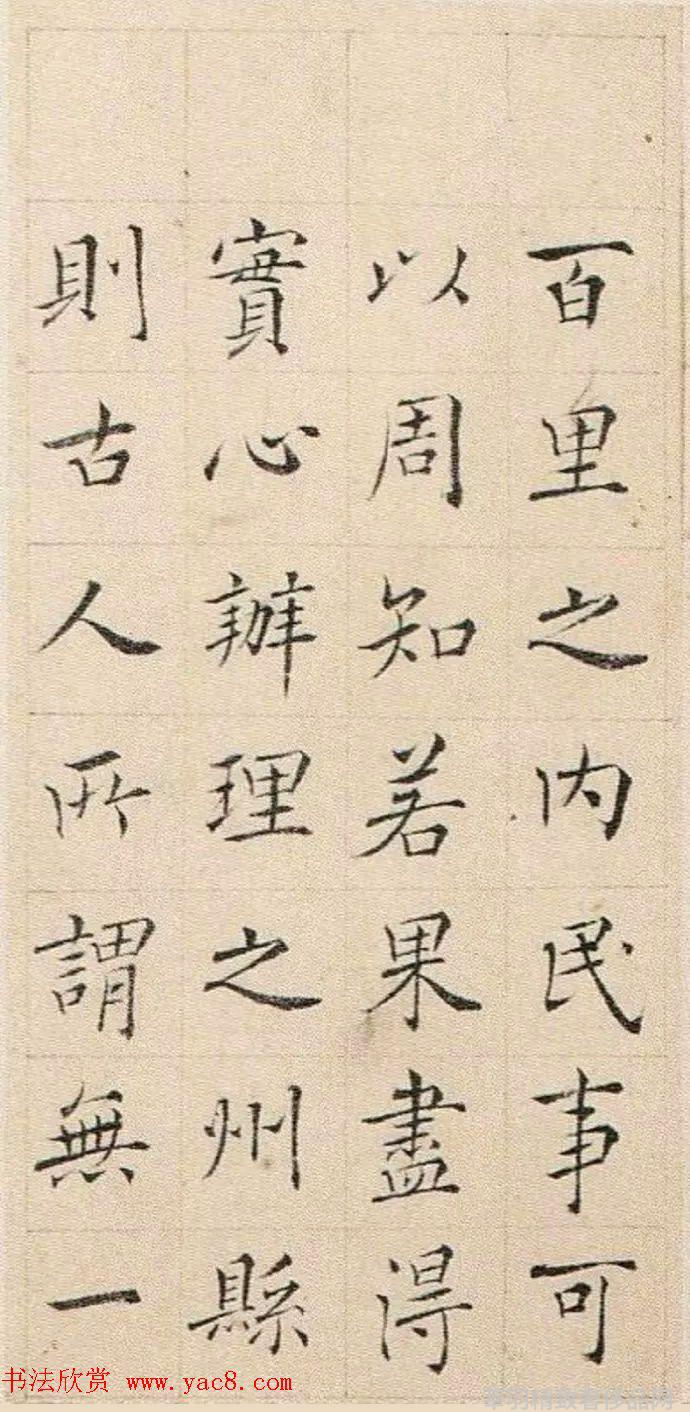 百里之内民事可
以周知若果盡得
實心辦理之州縣
則古人所謂無一
书法欣赏 www.yac8.com